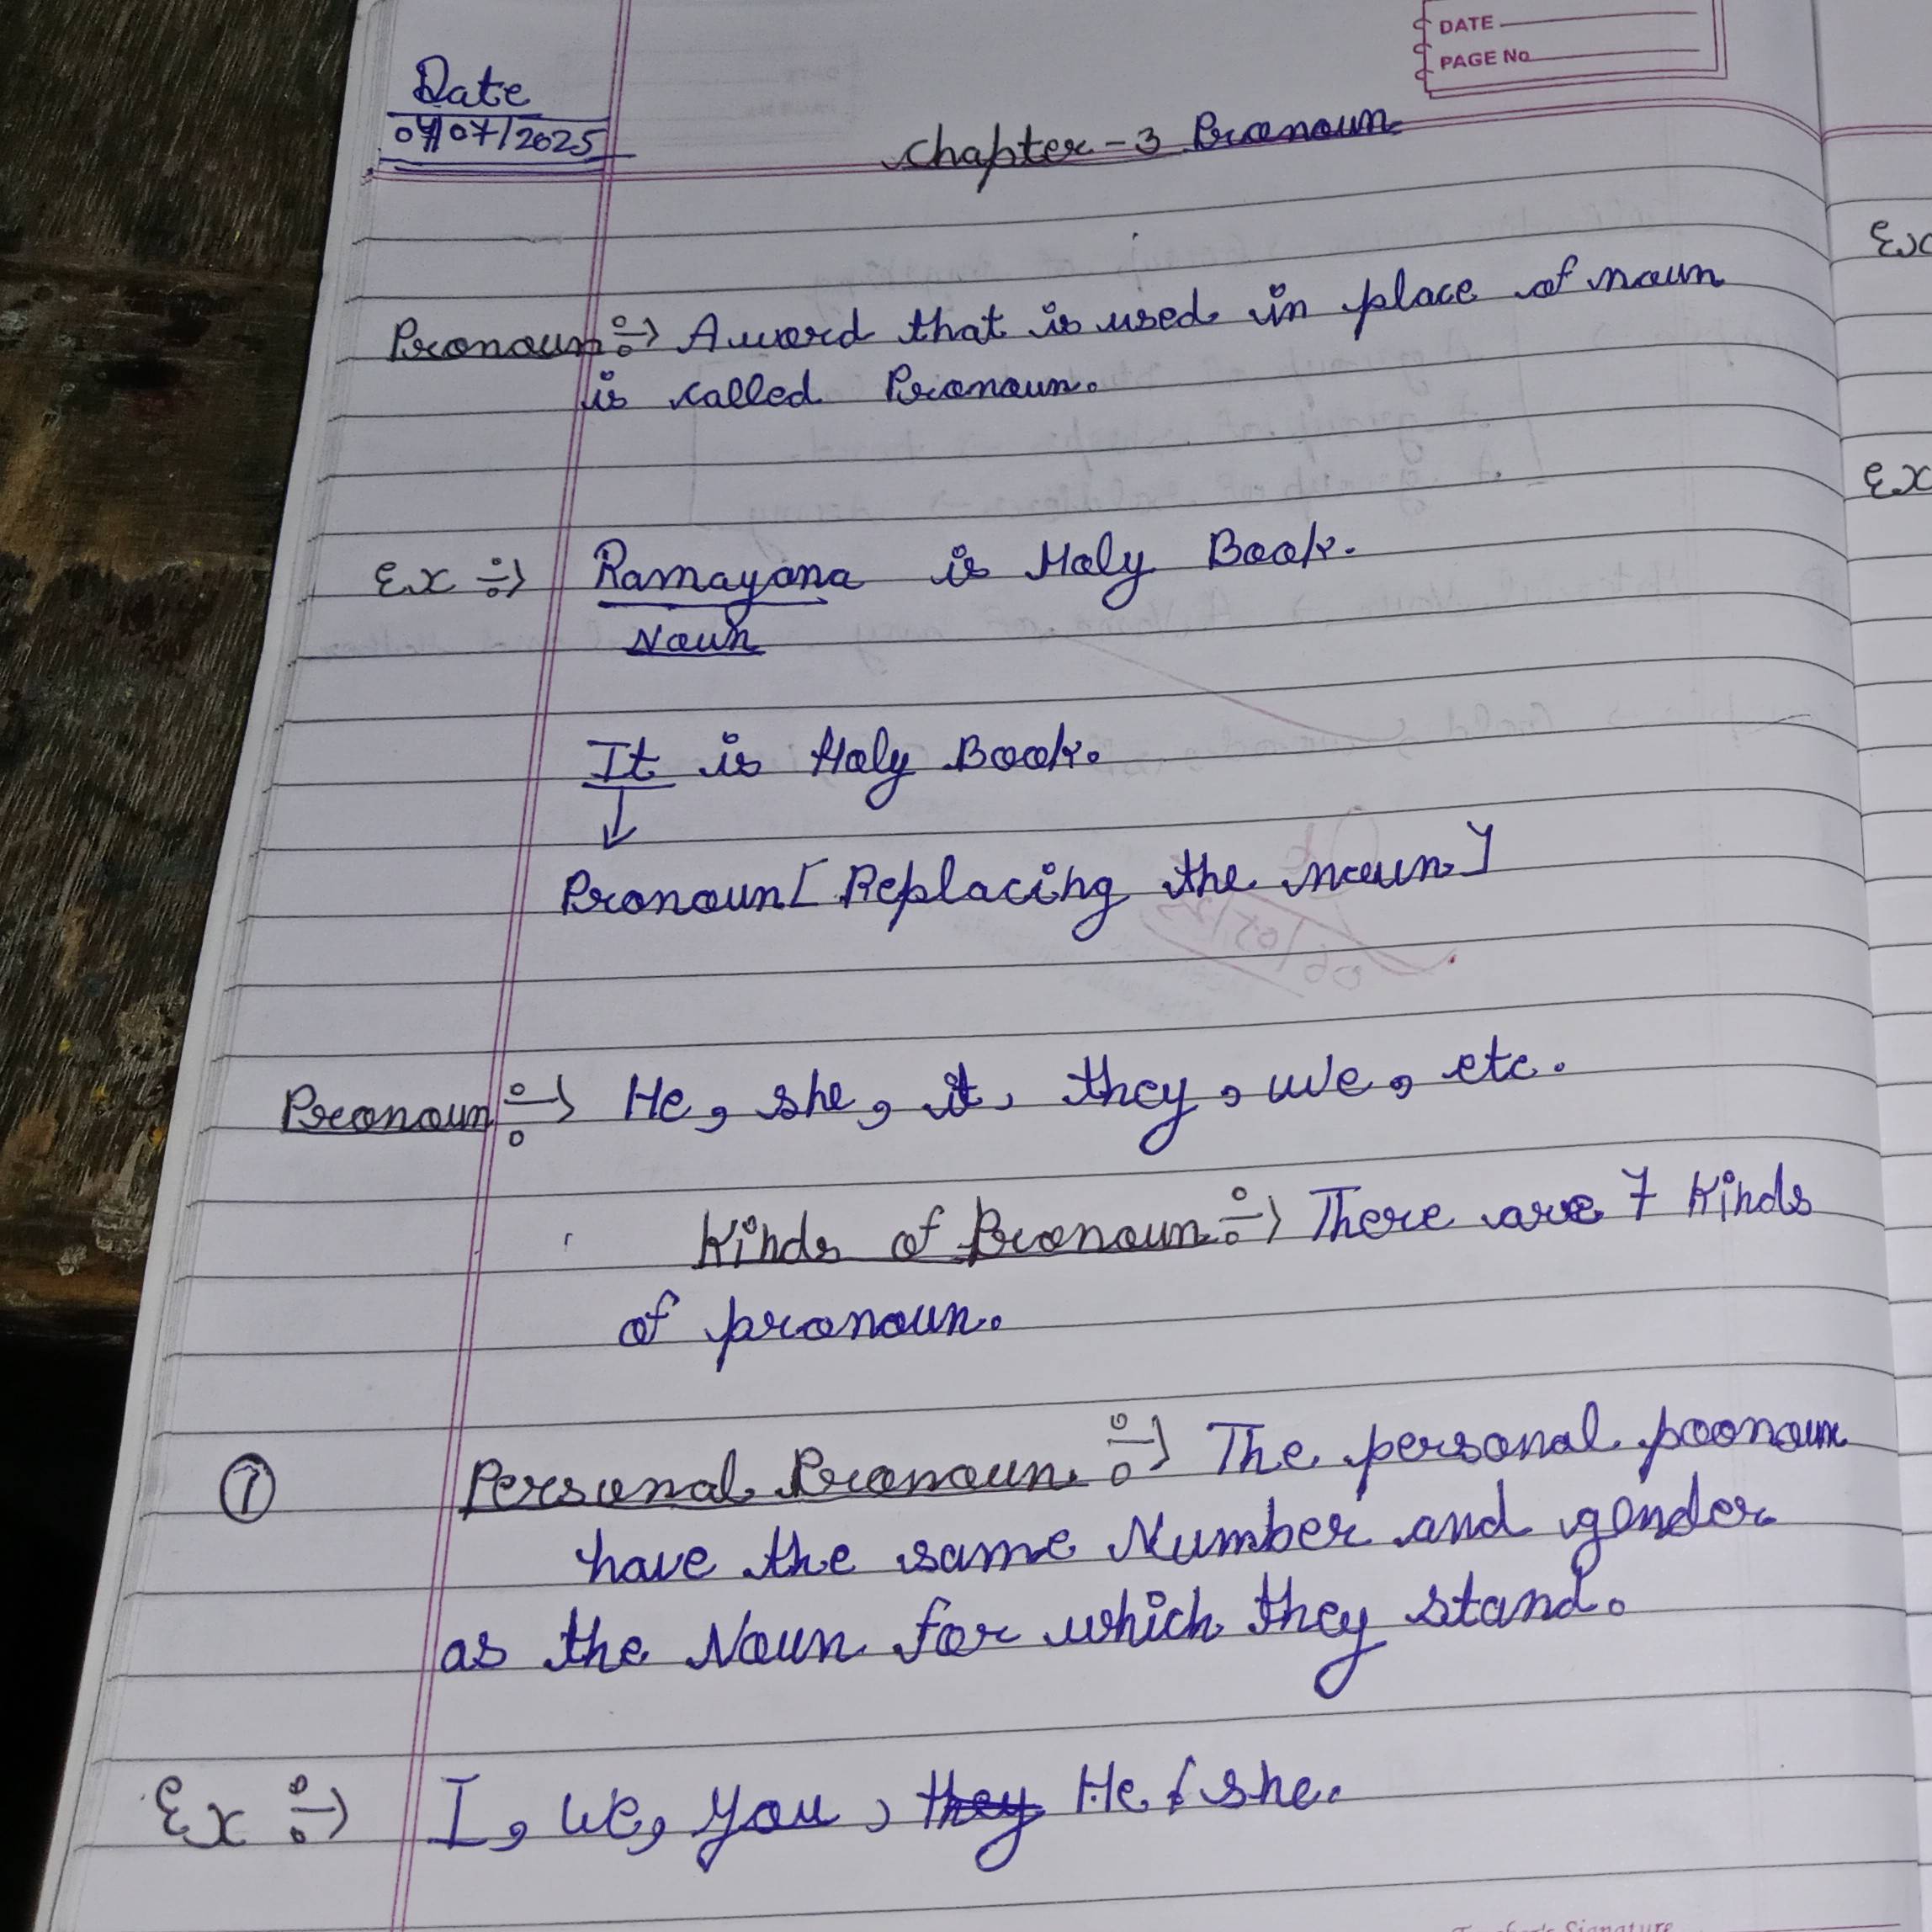 DATE
PAGE No
Date
04/07/2025
Chapter-3 Pronoun
Pronoun÷) A word that is used in place of noun
is called Pronoun.
Ex ÷) Ramayana is Holy Book.
Noun
It is Holy Book.
↓
Pronoun [Replacing the noun]
Pronoun÷) He, she, it, they, we, etc.
Kinds of Pronoun÷) There are 7 Kinds
of pronoun.
① Personal Pronoun ÷) The personal poonoun
have the same Number and gender
as the Noun for which they stand.
Ex ÷) I, We, You, they He & she.
Ex
Ex